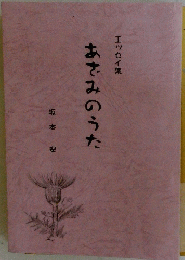 エッセイ集
あざみのうた